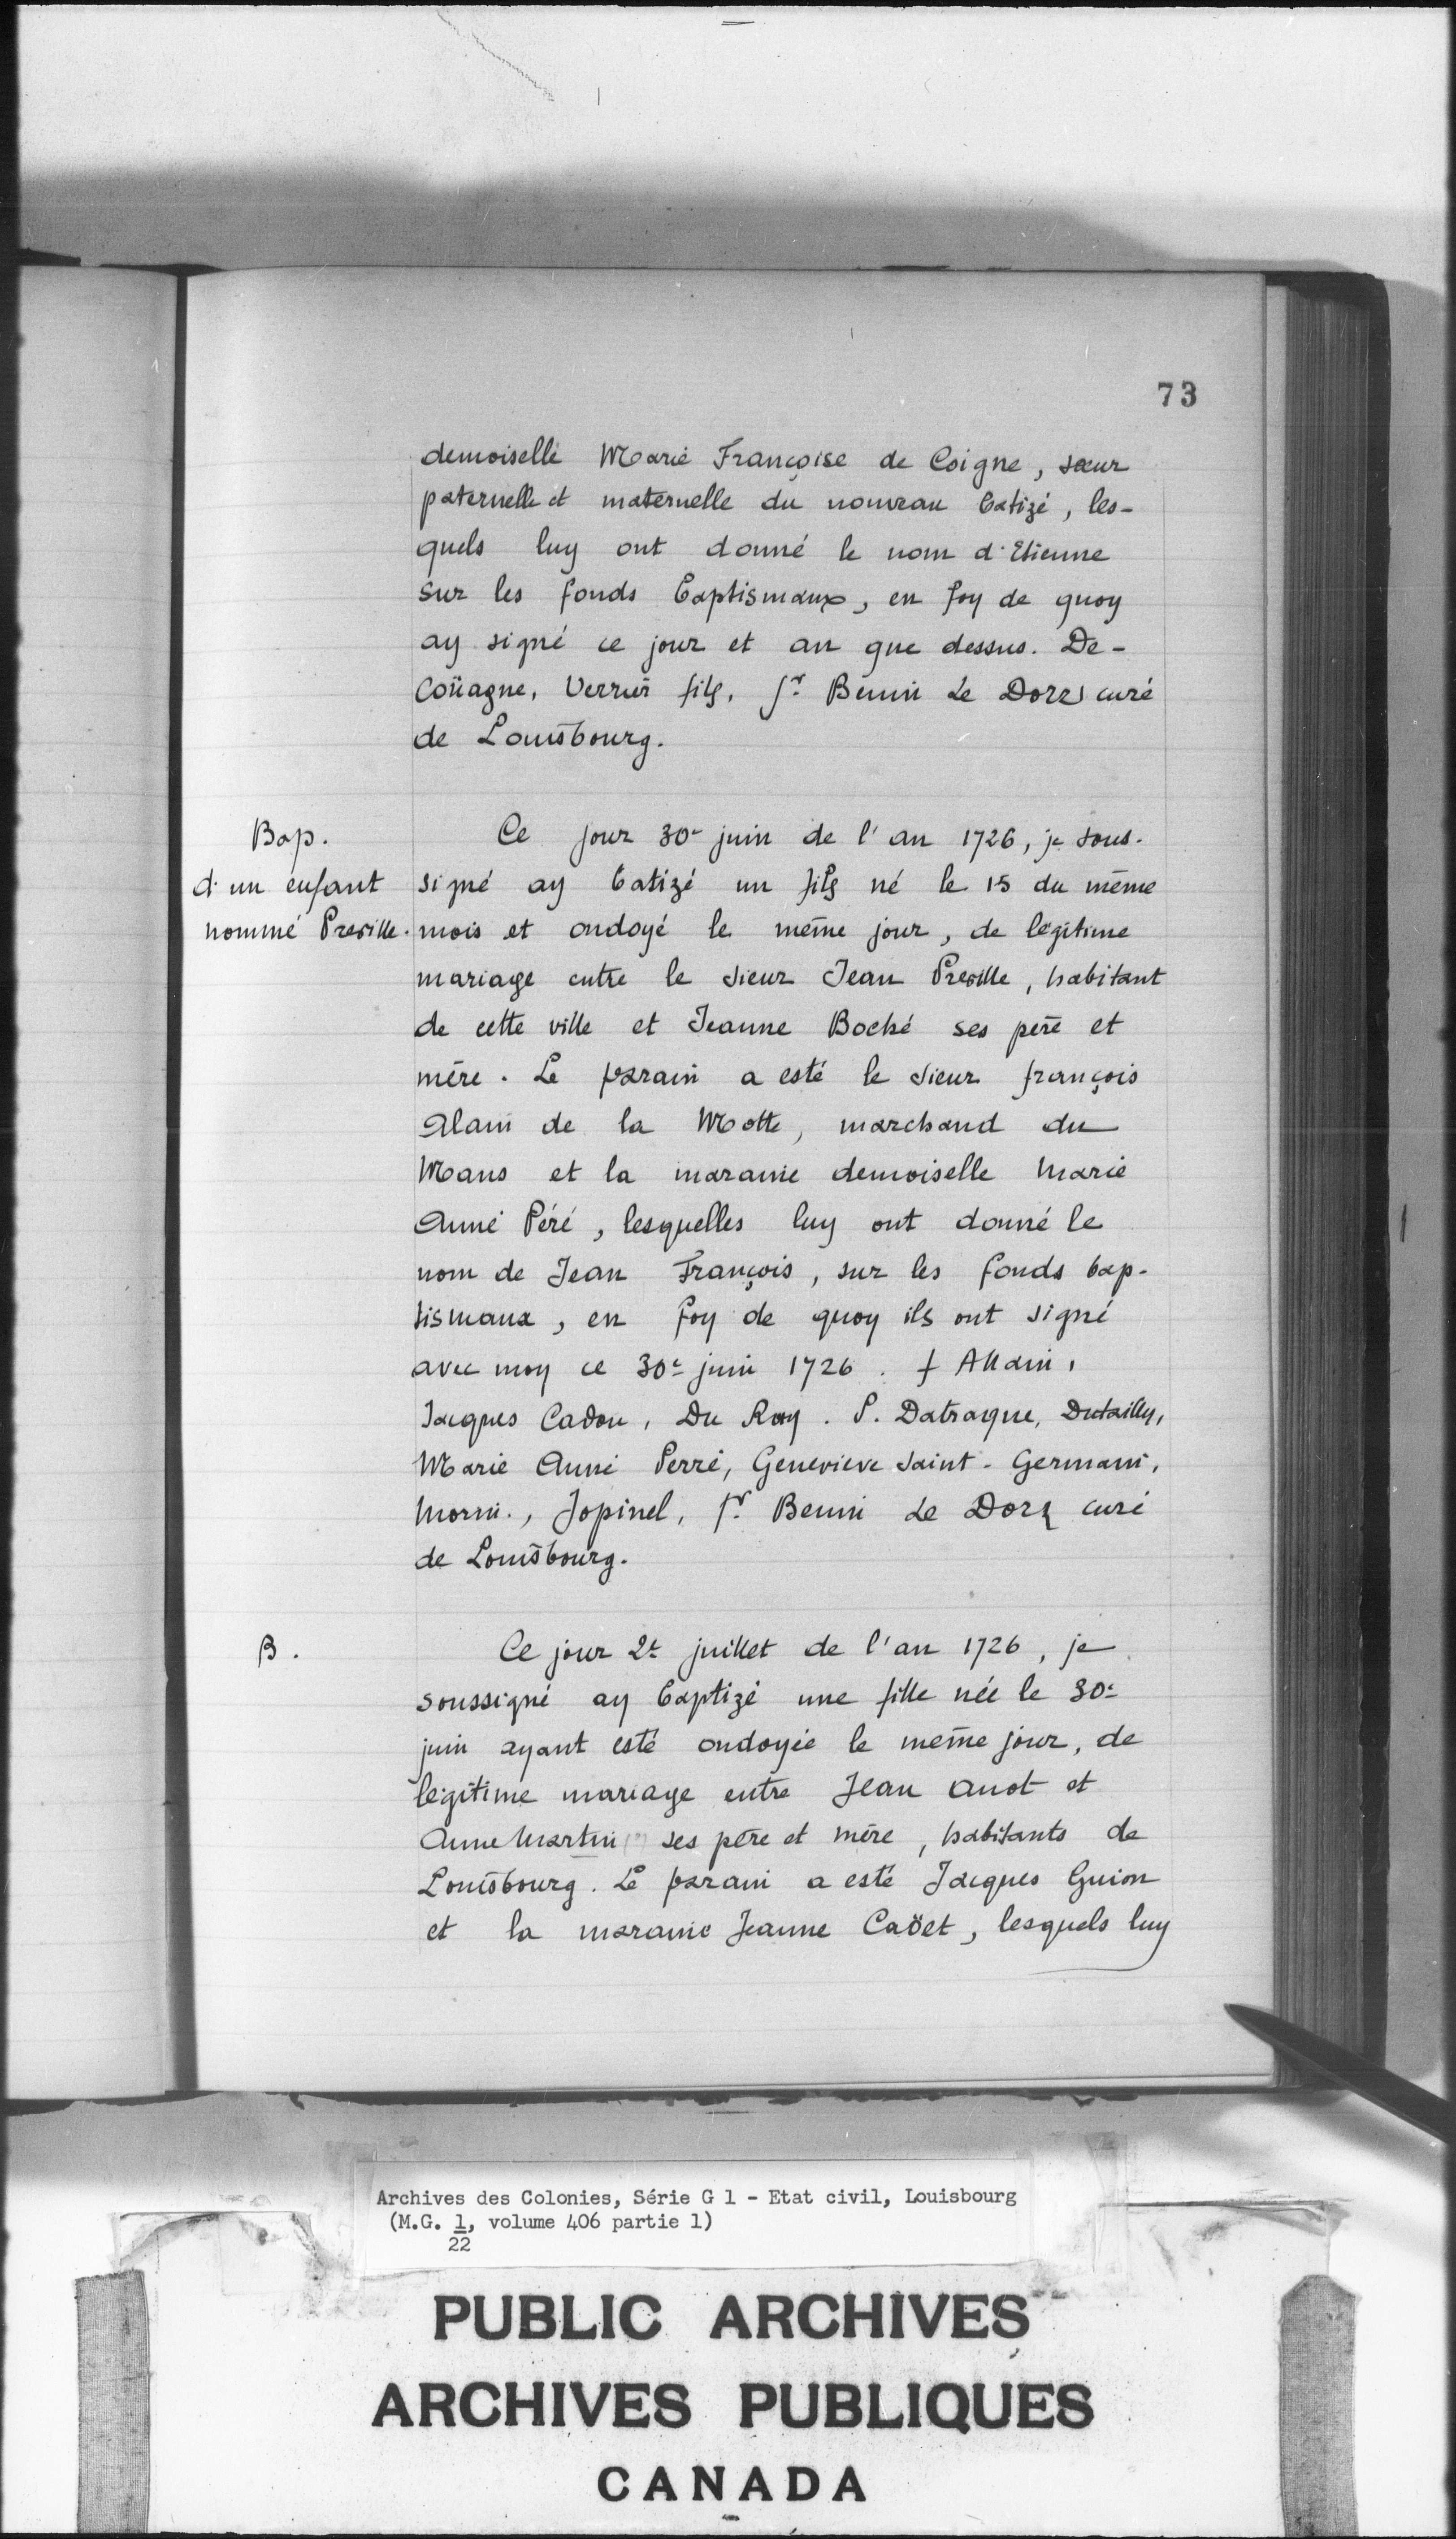 73
demoiselle Marie Françoise de Coigne, sœur
paternelle et maternelle du nouveau batizé, les-
quels luy ont donné le nom d'Etienne
sur les fonds baptismaux, en foy de quoy
ay signé ce jour et an que dessus. De-
Coüagne, Verrier fils, fr Benin Le Dorz curé
de Louisbourg.
Bap.
d'un enfant
nommé Preville.
Ce jour 30e juin de l'an 1726, je sous-
signé ay batizé un fils né le 15 du même
mois et ondoyé le même jour, de légitime
mariage entre le sieur Jean Preville, habitant
de cette ville et Jeanne Boché ses père et
mère. Le parain a esté le sieur françois
Alain de la Motte, marchand du
Mans et la maraine demoiselle Marie
Anne Péré, lesquelles luy ont donné le
nom de Jean François, sur les fonds bap-
tismaux, en foy de quoy ils ont signé
avec moy ce 30e juin 1726. f Allain,
Jacques Cadou, Du Roy. P. Datrague, Dutailly,
Marie Anne Perré, Genevieve Saint-Germain,
Morin., Jopinel, fr Benin Le Dorz curé
de Louisbourg.
B.
Ce jour 2e juillet de l'an 1726, je
soussigné ay baptizé une fille née le 30e
juin ayant esté ondoyée le même jour, de
légitime mariage entre Jean Anot et
Anne Martin (?) ses père et mère, habitants de
Louisbourg. Le parain a esté Jacques Guion
et la maraine Jeanne Caöet, lesquels luy
Archives des Colonies, Série G 1 - Etat civil, Louisbourg
(M.G. 1, volume 406 partie 1)
22
PUBLIC ARCHIVES
ARCHIVES PUBLIQUES
CANADA